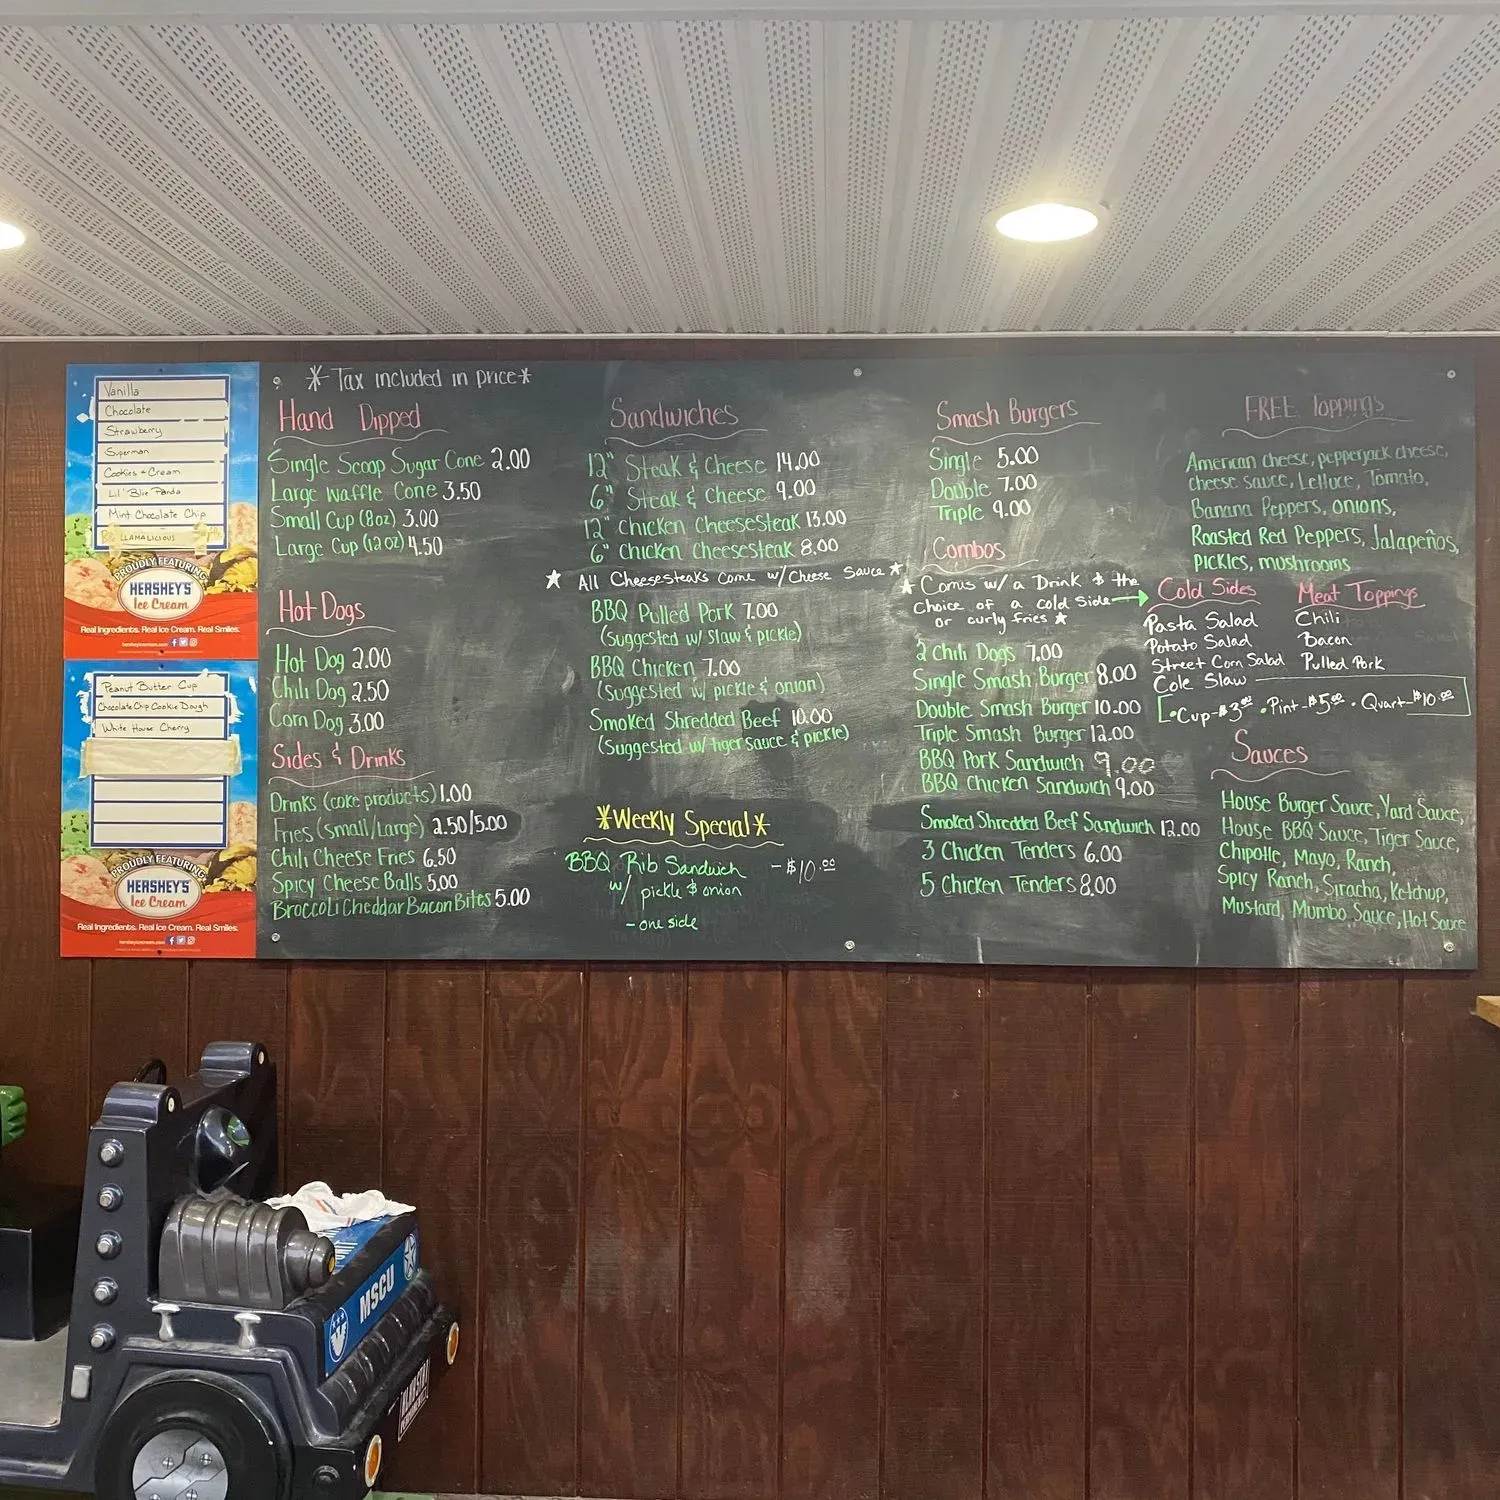 Vanilla
Chocolate
Strawberry
Superman
Cookies + Cream
Lil' Blue Panda
Mint Chocolate Chip
LLAMALICIOUS
PROUDLY FEATURING
HERSHEY'S
Ice Cream
Real Ingredients. Real Ice Cream. Real Smiles.
hersheyicecream.com
Peanut Butter Cup
Chocolate Chip Cookie Dough
White House Cherry
PROUDLY FEATURING
HERSHEY'S
Ice Cream
Real Ingredients. Real Ice Cream. Real Smiles.
hersheyicecream.com
*Tax included in price*
Hand Dipped
Single Scoop Sugar Cone 2.00
Large Waffle Cone 3.50
Small Cup (8oz) 3.00
Large Cup (12oz) 4.50
Hot Dogs
Hot Dog 2.00
Chili Dog 2.50
Corn Dog 3.00
Sides & Drinks
Drinks (coke products) 1.00
Fries (small/Large) 2.50/5.00
Chili Cheese Fries 6.50
Spicy Cheese Balls 5.00
Broccoli Cheddar Bacon Bites 5.00
Sandwiches
12" Steak & Cheese 14.00
6" Steak & Cheese 9.00
12" Chicken Cheesesteak 13.00
6" Chicken Cheesesteak 8.00
★ All Cheesesteaks Come w/ Cheese Sauce ★
BBQ Pulled Pork 7.00
(suggested w/ slaw & pickle)
BBQ Chicken 7.00
(suggested w/ pickle & onion)
Smoked Shredded Beef 10.00
(suggested w/ tiger sauce & pickle)
*Weekly Special*
BBQ Rib Sandwich - $10.00
w/ pickle & onion
- one side
Smash Burgers
Single 5.00
Double 7.00
Triple 9.00
Combos
★ Coms w/ a Drink & the
choice of a cold side →
or curly fries ★
2 Chili Dogs 7.00
Single Smash Burger 8.00
Double Smash Burger 10.00
Triple Smash Burger 12.00
BBQ Pork Sandwich 9.00
BBQ Chicken Sandwich 9.00
Smoked Shredded Beef Sandwich 12.00
3 Chicken Tenders 6.00
5 Chicken Tenders 8.00
FREE Toppings
American cheese, pepperjack cheese,
cheese sauce, Lettuce, Tomato,
Banana Peppers, onions,
Roasted Red Peppers, Jalapeños,
pickles, mushrooms
Cold Sides
Pasta Salad
Potato Salad
Street Corn Salad
Cole Slaw
Meat Toppings
Chili
Bacon
Pulled Pork
• Cup-$3.00 • Pint-$5.00 • Quart-$10.00
Sauces
House Burger Sauce, Yard Sauce,
House BBQ Sauce, Tiger Sauce,
Chipotle, Mayo, Ranch,
Spicy Ranch, Siracha, Ketchup,
Mustard, Mumbo Sauce, Hot Sauce
MSCU